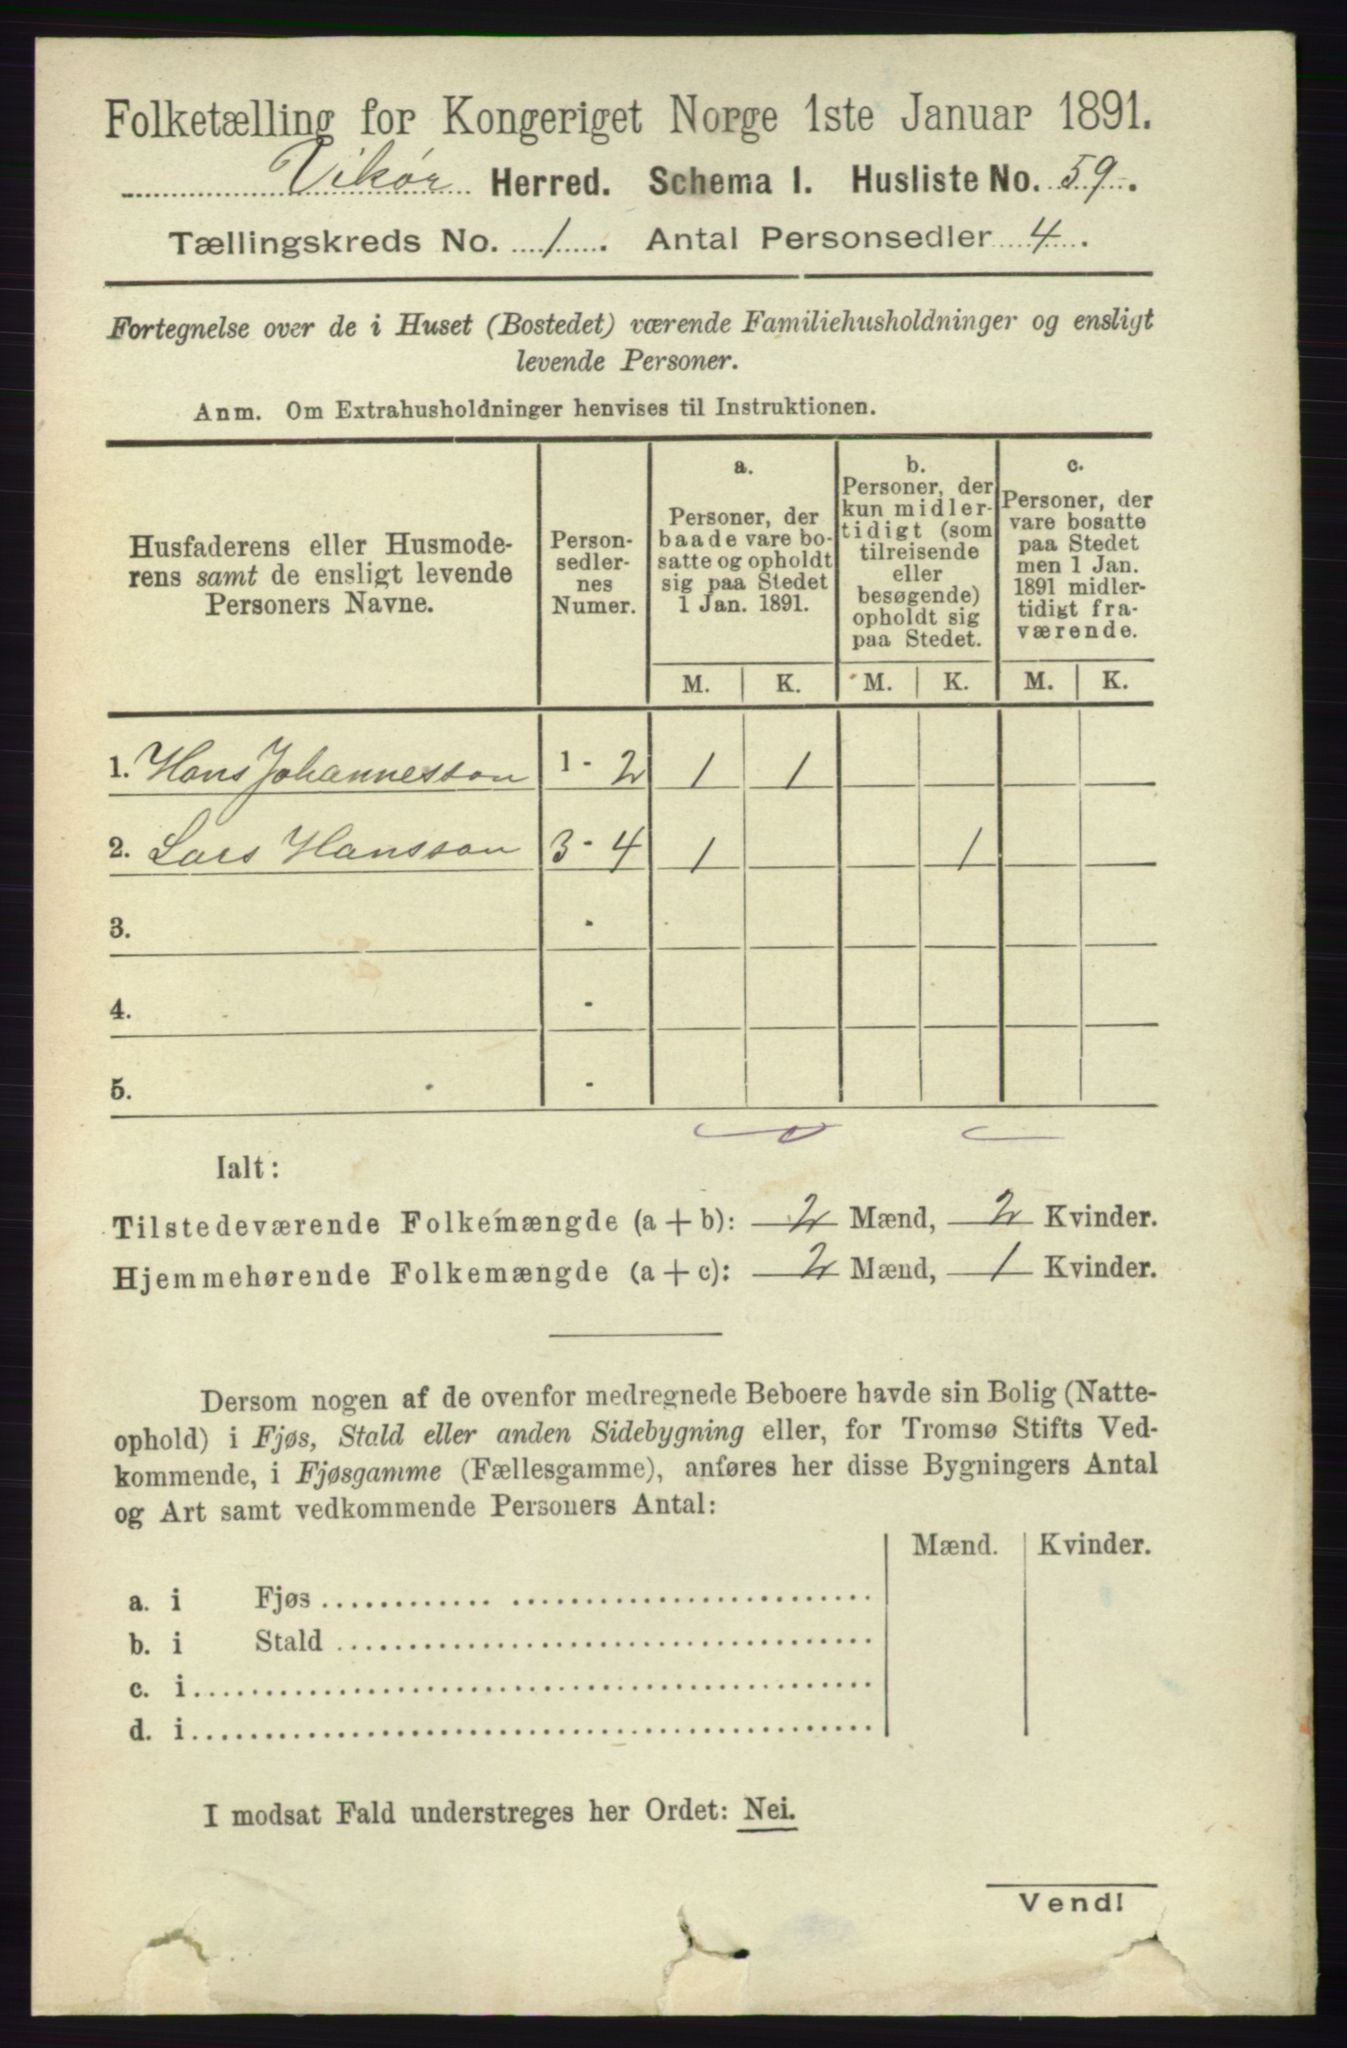 Folketælling for Kongeriget Norge 1ste Januar 1891.
Vikør Herred. Schema I. Husliste No. 59.
Tællingskreds No. 1. Antal Personsedler 4.
Fortegnelse over de i Huset (Bostedet) værende Familiehusholdninger og ensligt
levende Personer.
Anm. Om Extrahusholdninger henvises til Instruktionen.
Husfaderens eller Husmode-
rens samt de ensligt levende
Personers Navne.
Person-
sedler-
nes
Numer.
a.
Personer, der
baade vare bo-
satte og opholdt
sig paa Stedet
1 Jan. 1891.
b.
Personer, der
kun midler-
tidigt (som
tilreisende
eller
besøgende)
opholdt sig
paa Stedet.
c.
Personer, der
vare bosatte
paa Stedet
men 1 Jan.
1891 midler-
tidigt fra-
værende.
M. K. M. K. M. K.
1. Hans Johannesson 1 - 2 1 1
2. Lars Hansson 3 - 4 1 1
3. -
4. -
5. -
Ialt:
Tilstedeværende Folkemængde (a + b): 2 Mænd, 2 Kvinder.
Hjemmehørende Folkemængde (a + c): 2 Mænd, 1 Kvinder.
Dersom nogen af de ovenfor medregnede Beboere havde sin Bolig (Natte-
ophold) i Fjøs, Stald eller anden Sidebygning eller, for Tromsø Stifts Ved-
kommende, i Fjøsgamme (Fællesgamme), anføres her disse Bygningers Antal
og Art samt vedkommende Personers Antal:
Mænd. Kvinder.
a. i Fjøs
b. i Stald
c. i
d. i
I modsat Fald understreges her Ordet: Nei.
Vend!